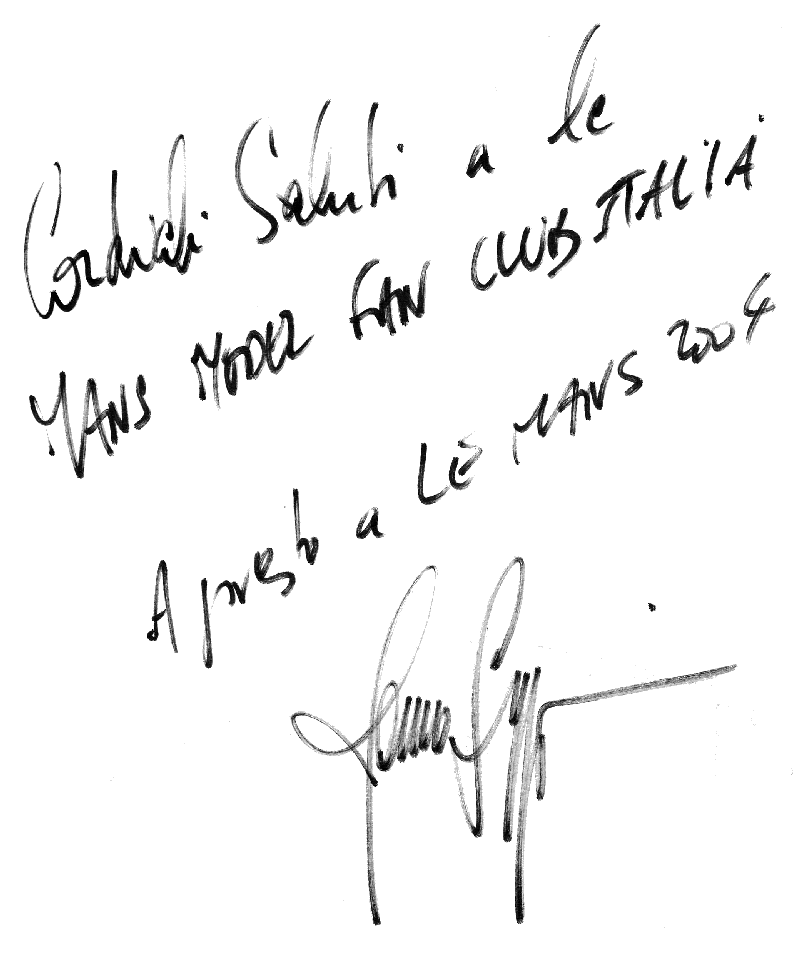 Cordiali Saluti a le
MANS MODEL FAN CLUB ITALIA
A presto a LE MANS 2004